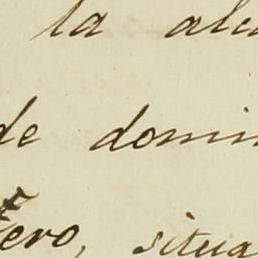 la alc
de domin
ero, situa